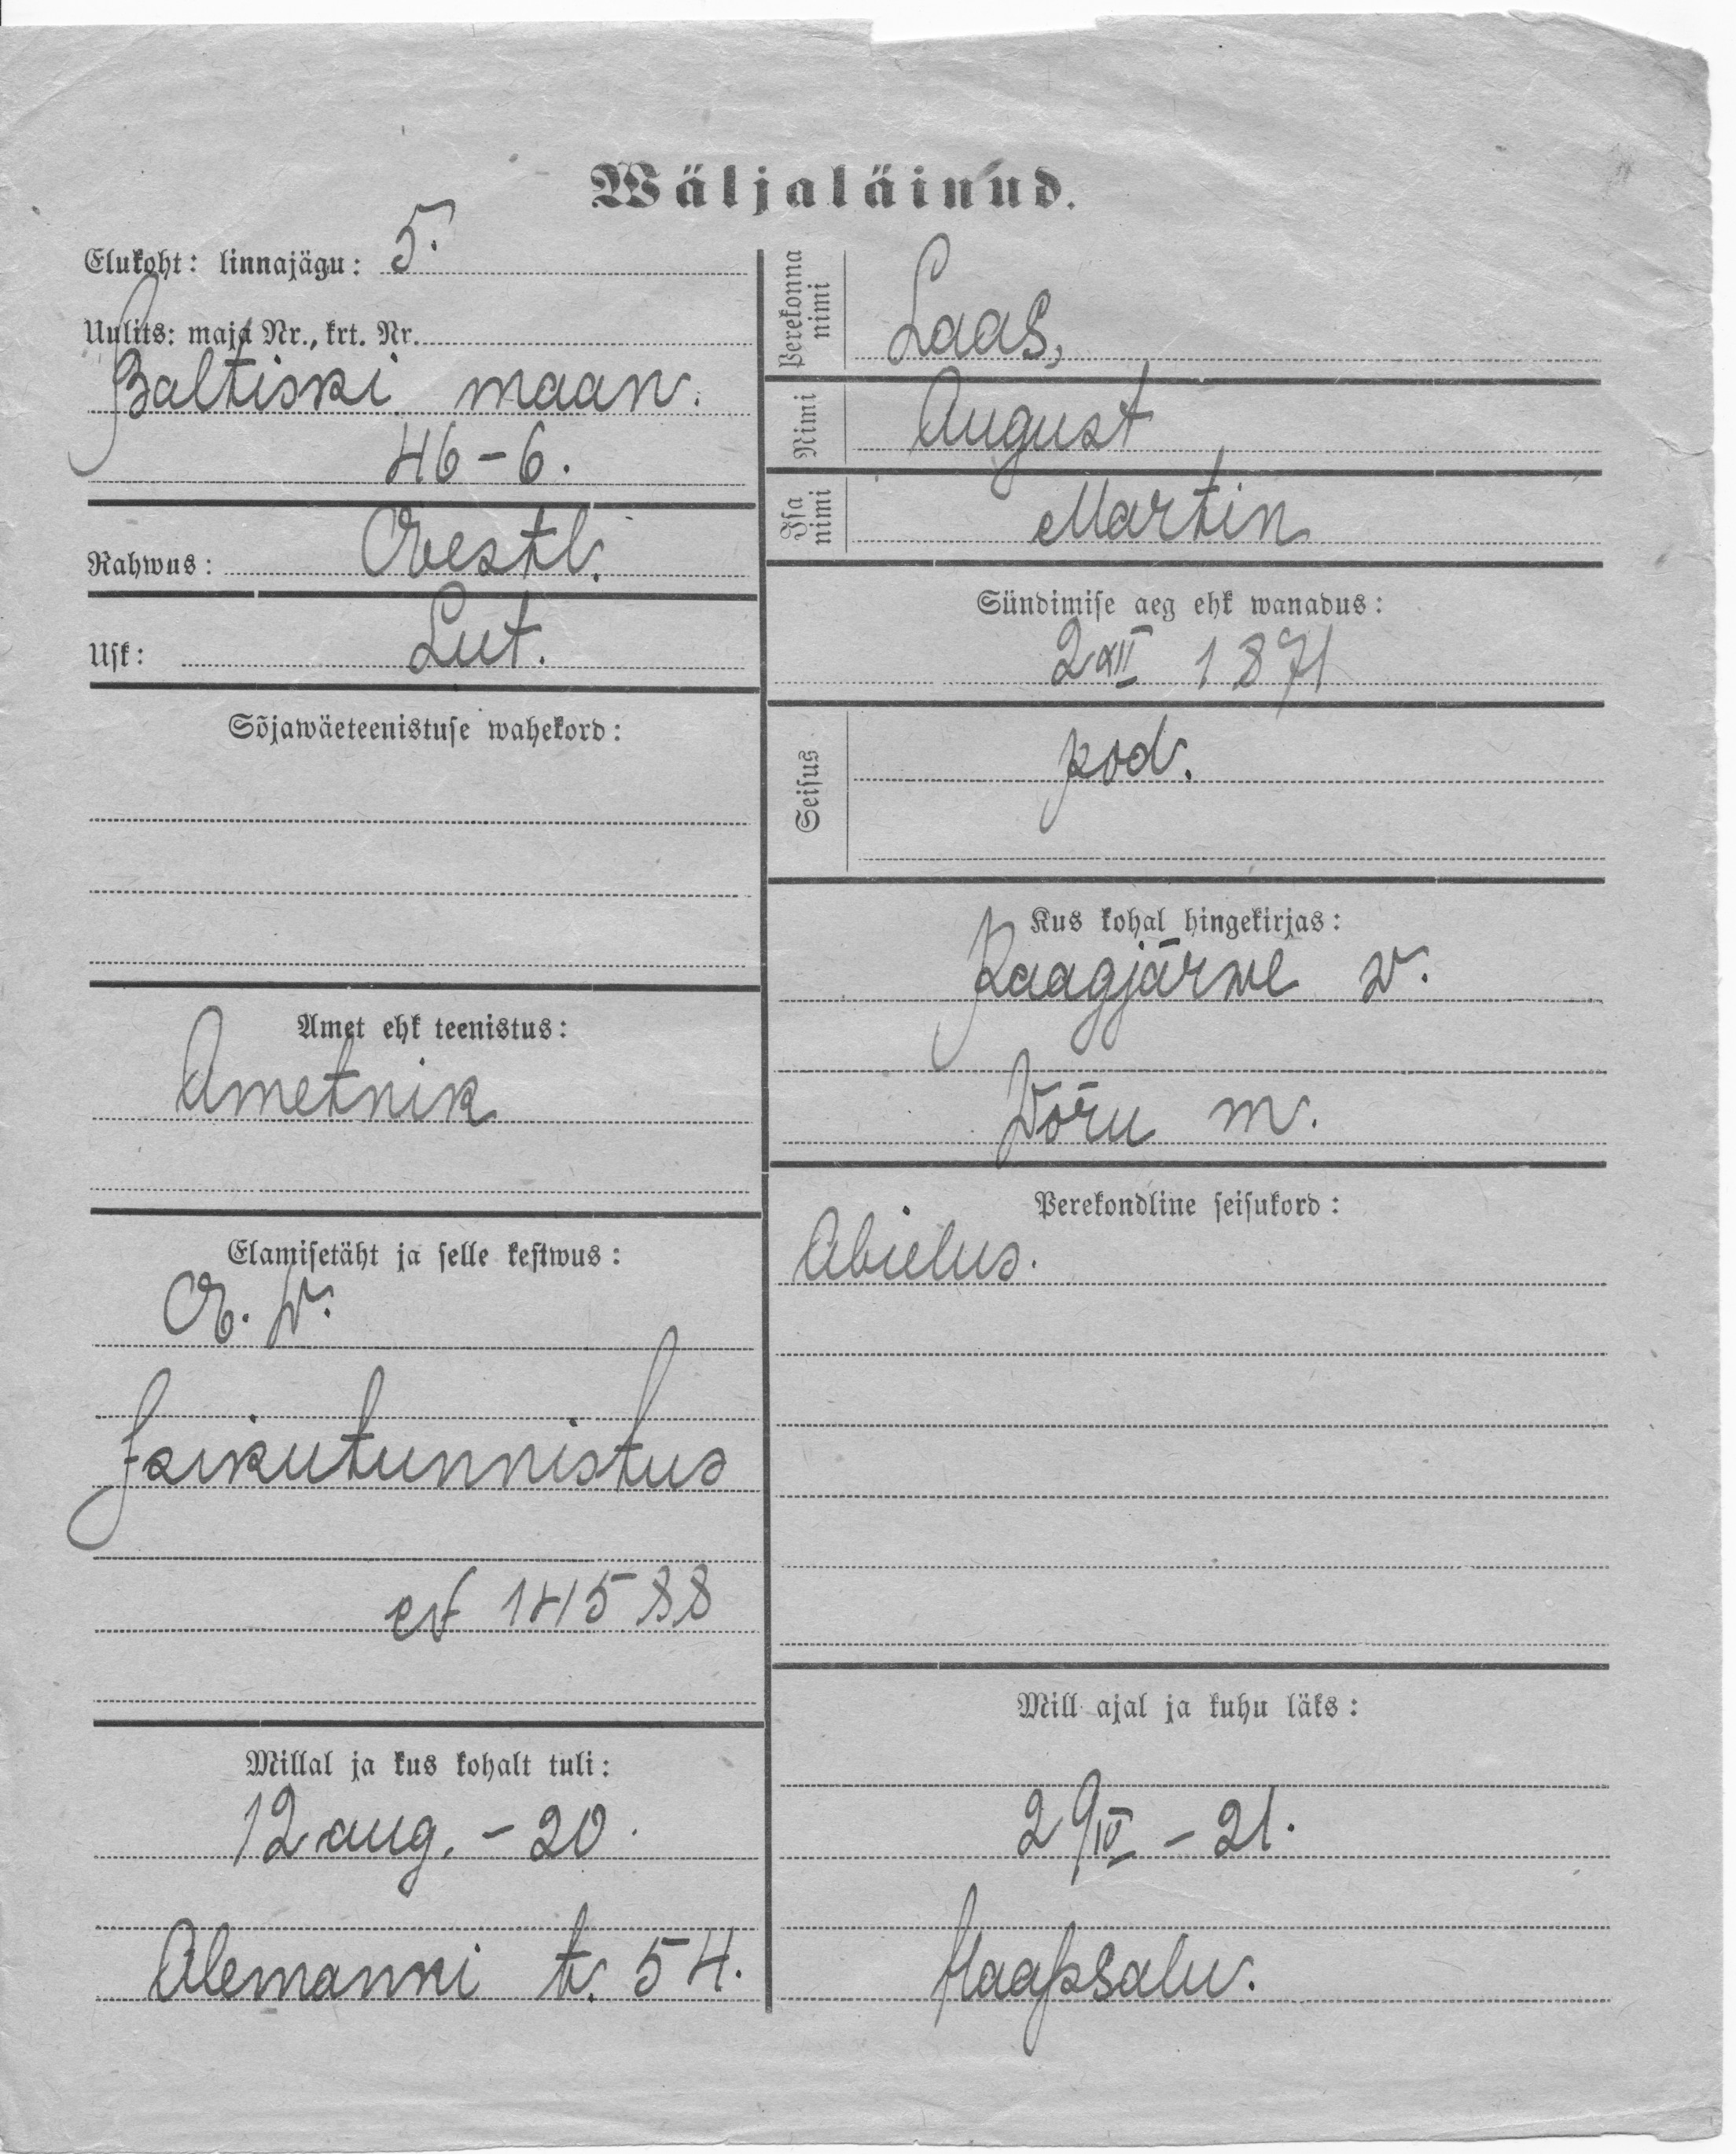 Wäljaläinud.
Elukoht: linnajägu: 5.
Uulits: maja Nr., krt. Nr.
Baltiski maan.
46-6.
Rahwus: Eestl.
Usk: Lut.
Sõjawäeteenistuse wahekord:
Amet ehk teenistus:
Ametnik
Elamisetäht ja selle kestwus:
E. W.
Isikutunnistus
141588
Millal ja kus kohalt tuli:
12 aug. - 20.
Alemanni t. 54.
Perekonna nimi Laas,
Nimi August
Isa nimi Martin
Sündimise aeg ehk wanadus:
2 XII 1871
Seisus kod.
Kus kohal hingekirjas:
Kaagjärwe w.
Wõru m.
Perekondline seisukord:
Abielus.
Mill ajal ja kuhu läks:
29 IV - 21.
Haapsalu.